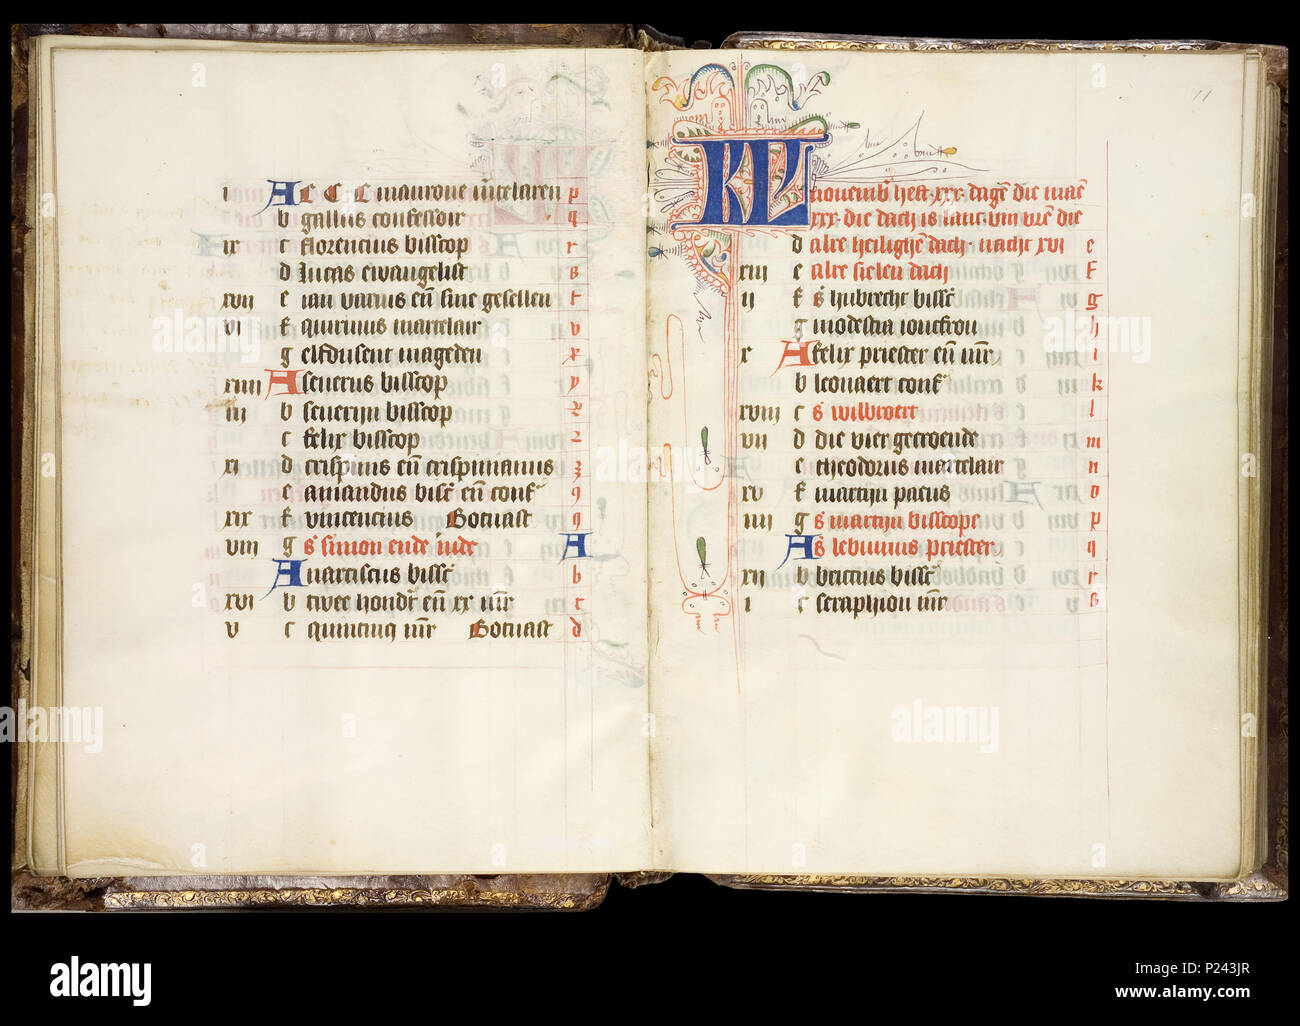 i A CCC maurone mertelaren p
b gallus confessoir q
ix c florencius bisscop r
d lucas ewangelist s
xvii e ian vanius en sine gesellen t
vi f quirinus martelair v
g elfdusent mageden x
xiiii A severus bisscop y
iii b severijn bisscop z
c felix bisscop 2
xi d crispinus en crispinianus 3
e amandus bisc en conf 9
xix f vincencius Botuast 9
viii g s simon ende iude A
A narciscus bissc b
xvi b twee hondr en xx mr c
v c quintinus mr Botuast d
11
KL novemb heft xxx dage die maen
xxx die dach is lanc viii uren die
d alre heilighe dach nacht xvi e
xiii e alre sielen dach f
ii f s hubrecht bissc g
g modestia ioncfrou h
x A felix priester en mr i
b leonaert conf k
xviii c s wilbroert l
vii d die vier gecroende m
e theodorus martelair n
xv f martijn pacus o
iiii g s martijn bisscope p
A s lebuinus priester q
xii b brictius bissc r
i c seraphion mr s
alamy
www.alamy.com
Image ID: P243JR